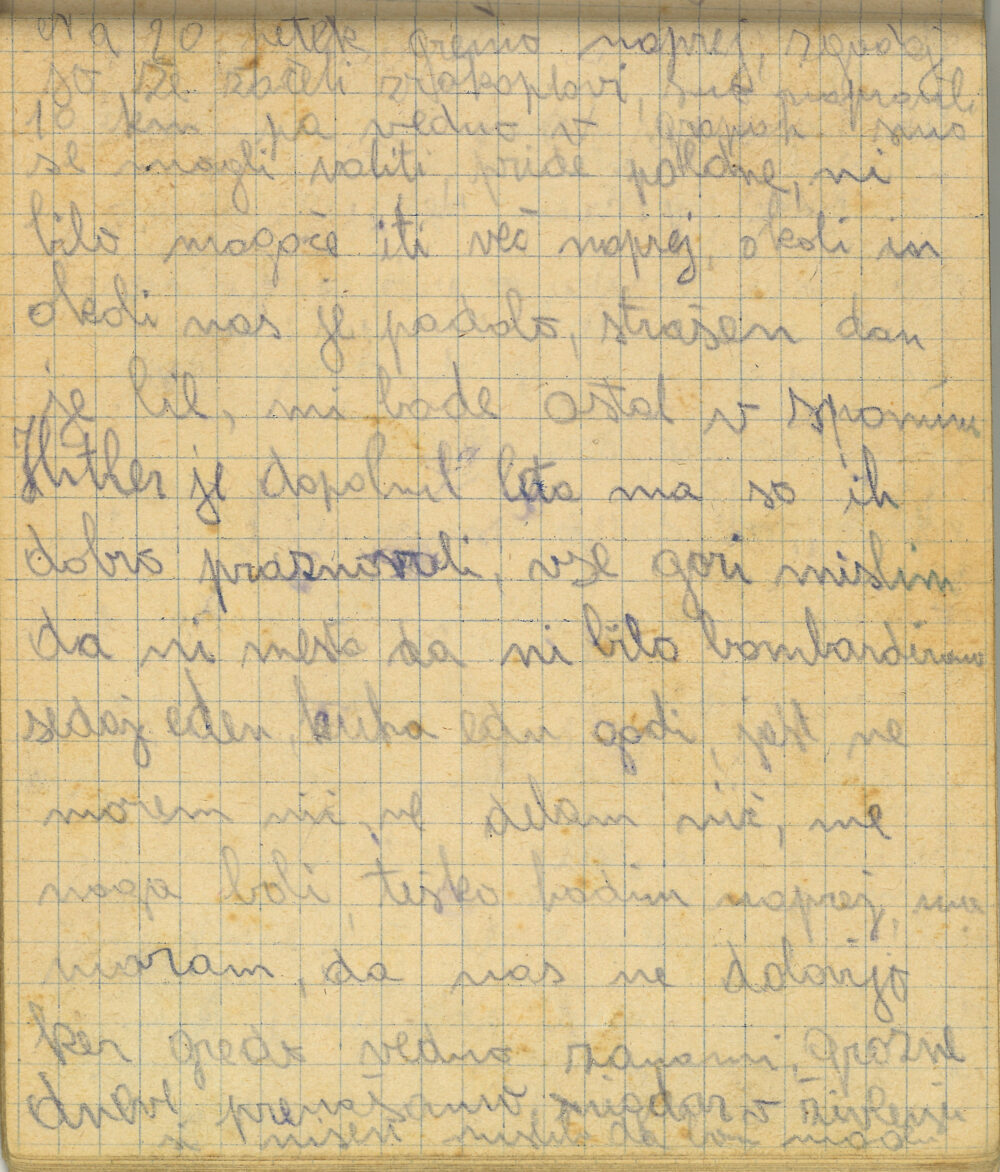 Na 20 petek gremo naprej, zgodaj
so že začeli zrakoplovi, smo napravili
10 km pa vedno v grapah smo
se mogli valiti, pride poldne, ni
bilo mogoče iti več naprej, okoli in
okoli nas je padalo, strašen dan
je bil, mi bode ostal v spominu
Hitler je dopolnil leta ma so ih
dobro praznovali, vse gori mislim
da ni mesta da ni bilo bombardirano
sedaj eden kuha edn godi, jest ne
morem nič, ne delam nič, me
noga boli, teško hodim naprej, ma
moram, da nas ne dolovijo
ker gredo vedno zanami, grozne
dneve prenašamo, nigdar v življenju
si nisem mislu da